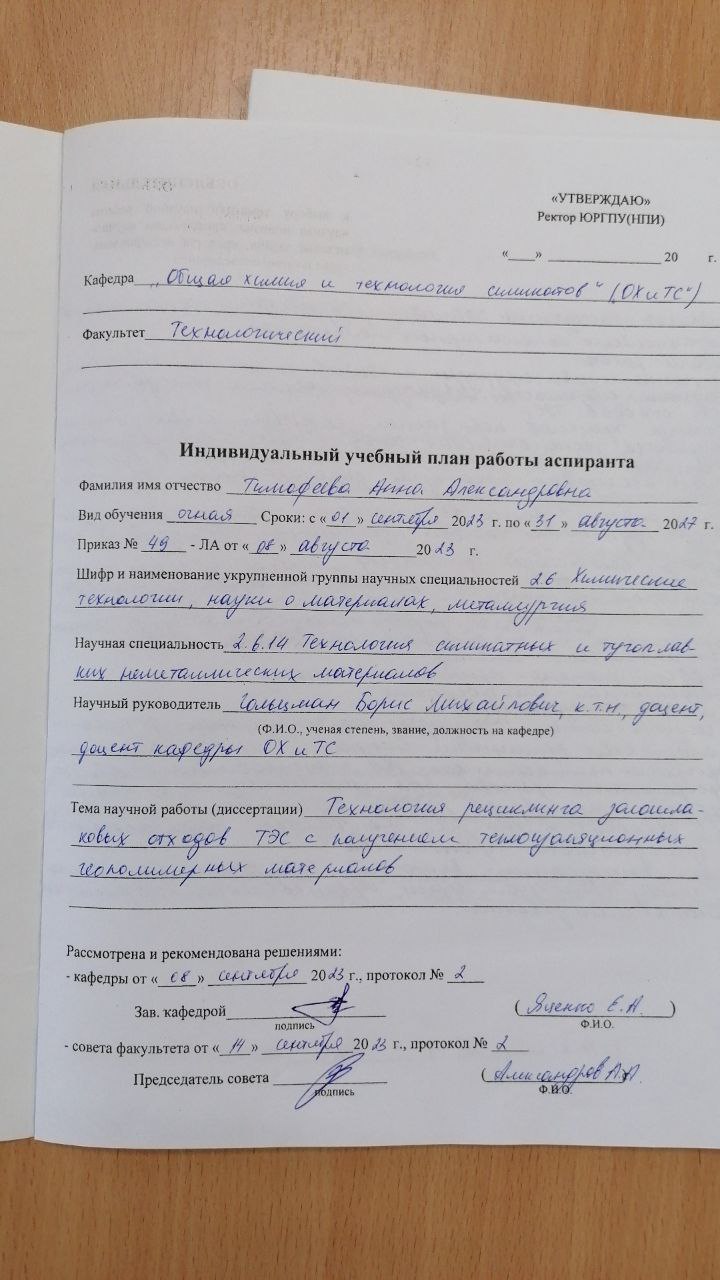 «УТВЕРЖДАЮ»
Ректор ЮРГПУ(НПИ)
«____» ______________ 20 г.
Кафедра „Общая химия и технология силикатов“ (ОХиТС")
Факультет Технологический
Индивидуальный учебный план работы аспиранта
Фамилия имя отчество Тимофеева Анна Александровна
Вид обучения очная Сроки: с «01» сентября 2023 г. по «31» августа 2027 г.
Приказ № 49 - ЛА от «08» августа 2023 г.
Шифр и наименование укрупненной группы научных специальностей 2.6 Химические
технологии, науки о материалах, металлургия
Научная специальность 2.6.14 Технология силикатных и тугоплав-
ких неметаллических материалов
Научный руководитель Гольцман Борис Михайлович, к.т.н., доцент,
(Ф.И.О., ученая степень, звание, должность на кафедре)
доцент кафедры ОХиТС
Тема научной работы (диссертации) Технология рециклинга золошла-
ковых отходов ТЭС с получением теплоизоляционных
геополимерных материалов
Рассмотрена и рекомендована решениями:
- кафедры от «08» сентября 2023 г., протокол № 2
Зав. кафедрой (Яценко Е.А.)
подпись Ф.И.О.
- совета факультета от «14» сентября 2023 г., протокол № 2
Председатель совета (Александров А.А)
подпись Ф.И.О.